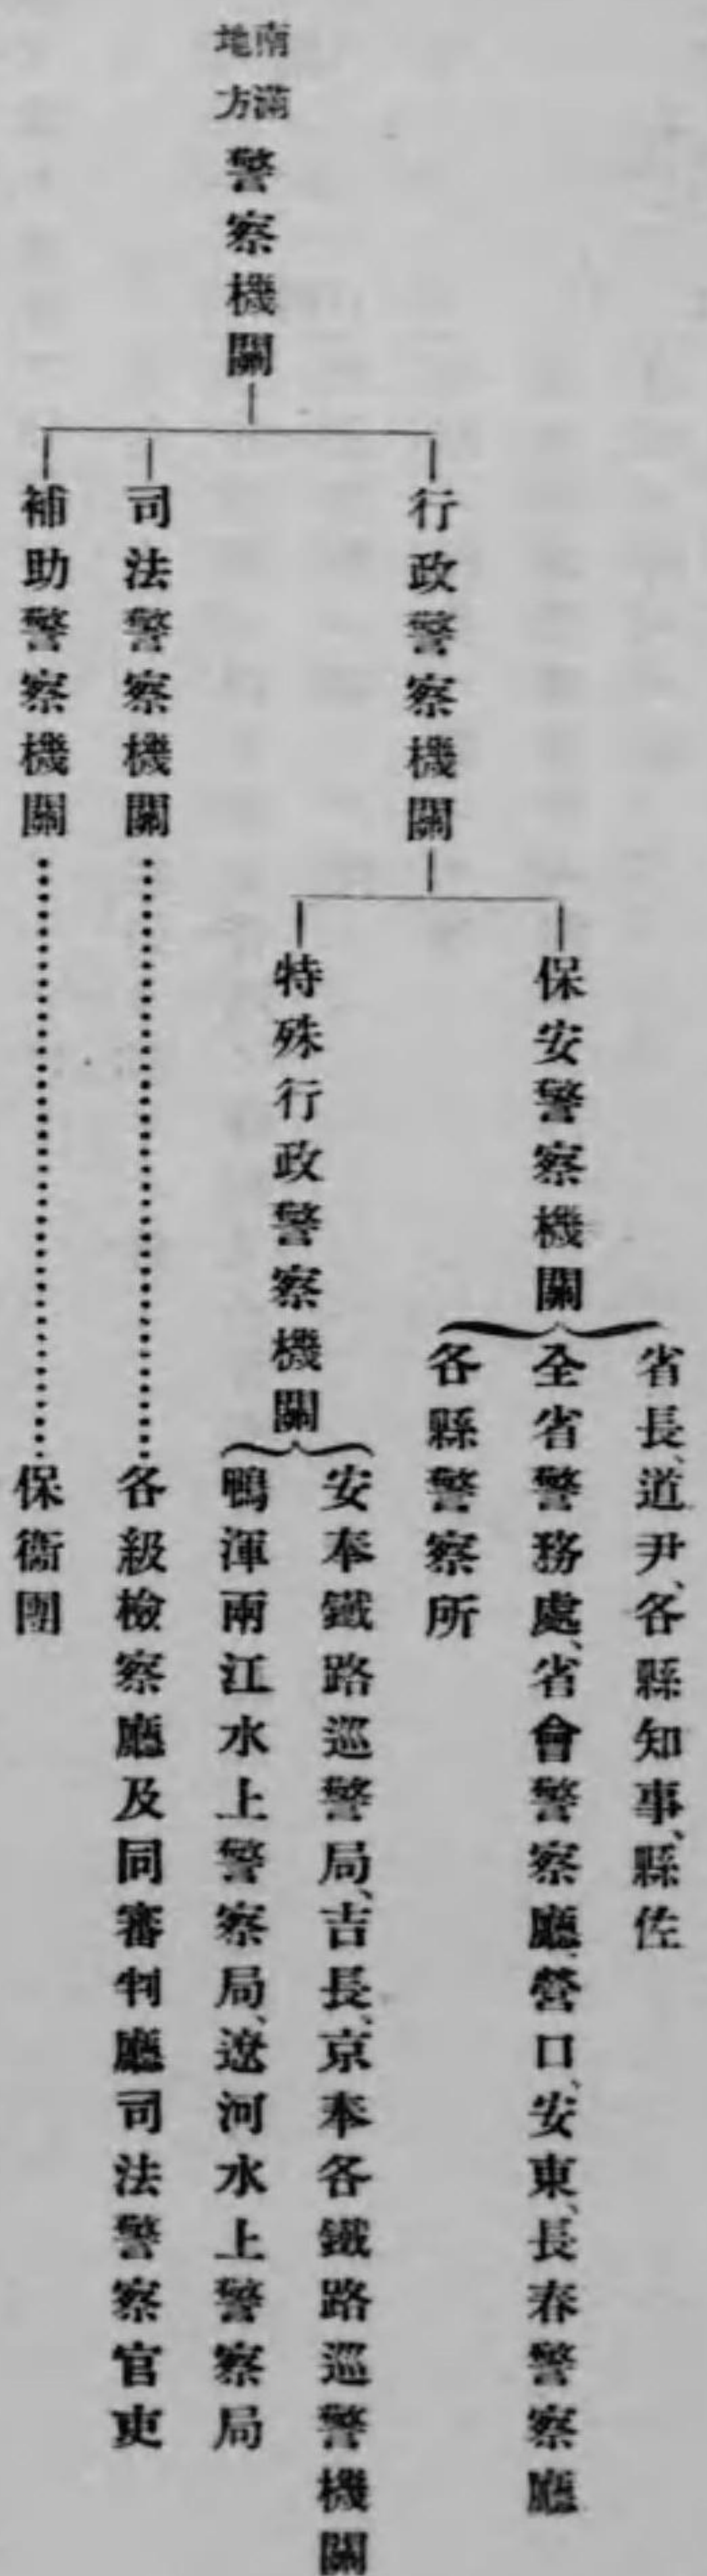 南滿地方警察機關
行政警察機關
保安警察機關
省長、道尹、各縣知事、縣佐
全省警務處、省會警察廳、營口、安東、長春警察廳
各縣警察所
特殊行政警察機關
安奉鐵路巡警局、吉長、京奉各鐵路巡警機關
鴨渾兩江水上警察局、遼河水上警察局
司法警察機關………各級檢察廳及同審判廳司法警察官吏
補助警察機關………保衞團